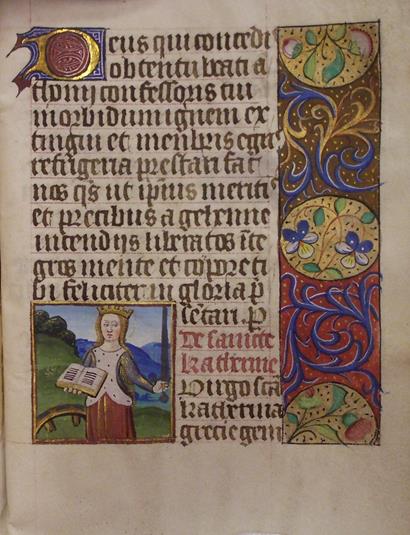 Deus qui concedis
obtentu beati a
thonij confessoris tui
morbidum ignem ex
tingui et membris egris
refrigeria prestari fac
nos qs ut ipius meritis
et precibus a gehenne
incendijs liberatos īte
gros mente et corpore ti
bi feliciter in gloria p
sētari. P
De sancte
katherine
Virgo sca
katherina
grecie gem